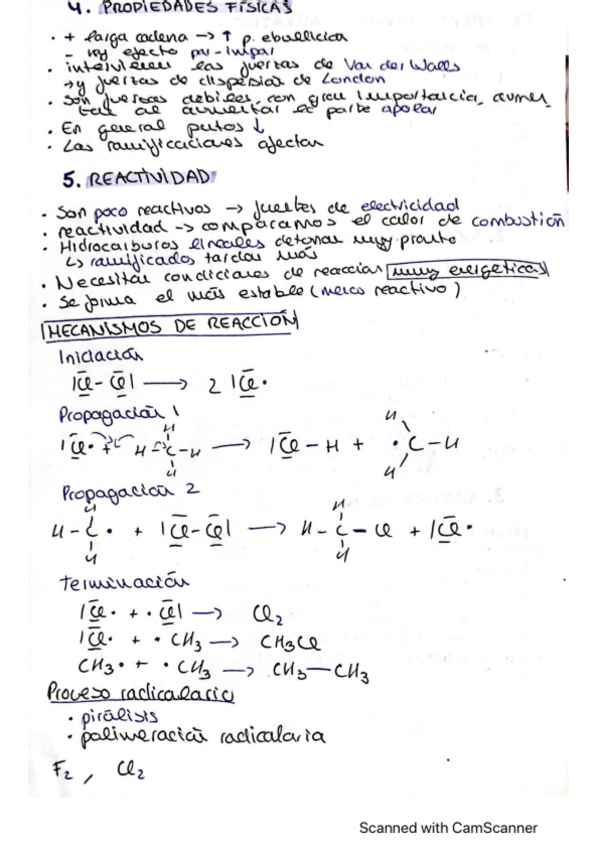 4. PROPIEDADES FÍSICAS
· + larga cadena → ↑ p. ebullición
- hay efecto par-impar
· intervienen las fuerzas de Van der Walls
→ y fuerzas de dispersión de London
· Son fuerzas debiles con gran importancia, aumen
tan al aumentar el parte apolar
· En general puntos ↓
· Las ramificaciones afectan
5. REACTIVIDAD
· Son poco reactivos → fuertes de electricidad
· reactividad → comparamos el calor de combustión
· Hidrocarburos lineales detonan muy pronto
↳ ramificados tardan más
· Necesitan condiciones de reacción muy energéticas
· Se forma el más estable (menos reactivo)
MECANISMOS DE REACCIÓN
Iniciación
|Cl-Cl| → 2 |Cl·
Propagación 1
H H
|Cl· + H-C-H → |Cl-H + ·C-H
H H
Propagación 2
H H
H-C· + |Cl-Cl| → H-C-Cl + |Cl·
H H
Terminación
|Cl· + ·Cl| → Cl2
|Cl· + ·CH3 → CH3Cl
CH3· + ·CH3 → CH3-CH3
Proceso radicalario
· pirólisis
· polimeración radicalaria
F2, Cl2
Scanned with CamScanner